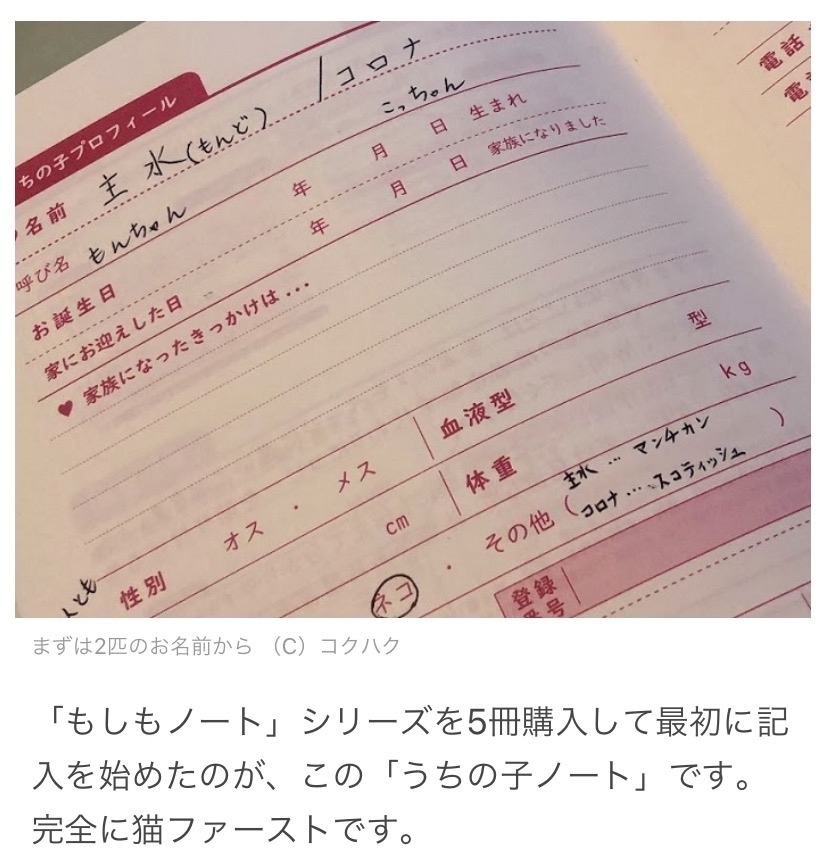 電話
電
ちの子プロフィール
名前 主水(もんど) / コロナ
呼び名 もんちゃん こっちゃん
お誕生日 年 月 日 生まれ
家にお迎えした日 年 月 日 家族になりました
♥ 家族になったきっかけは…
性別 オス・メス 血液型 型
cm 体重 kg
ネコ ・ その他( 主水…マンチカン
コロナ…スコティッシュ )
とも
登録
番号
まずは2匹のお名前から （C）コクハク
「もしもノート」シリーズを5冊購入して最初に記
入を始めたのが、この「うちの子ノート」です。
完全に猫ファーストです。